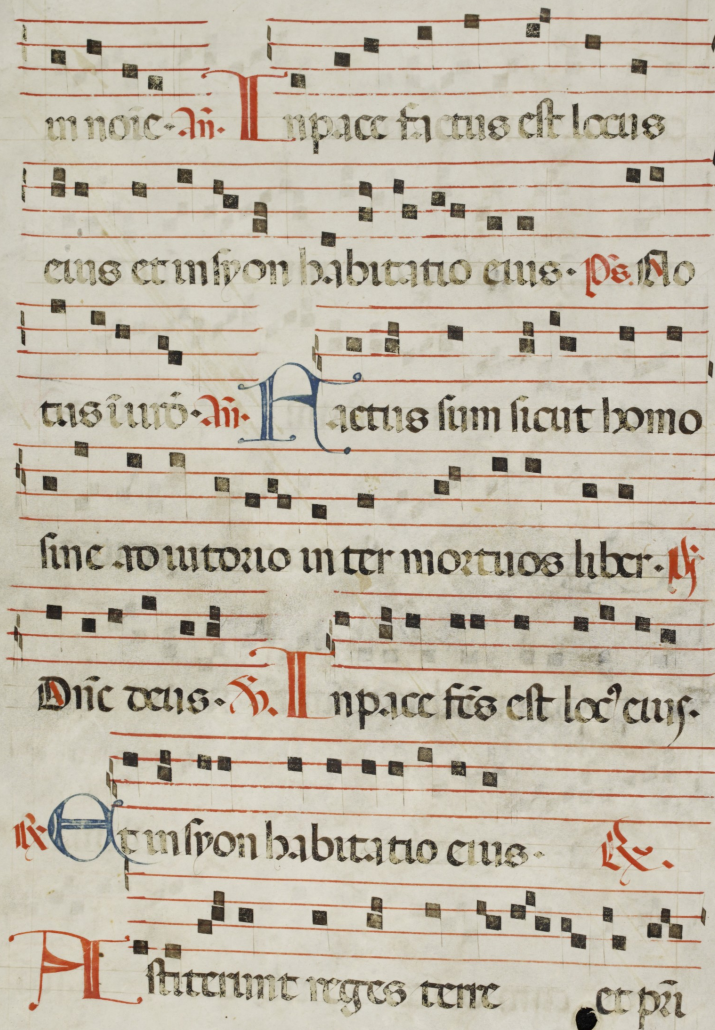 in noīe · Añ. In pace factus est locus
eius et in syon habitatio eius · ps. No
tus ī iuđ · Añ. Factus sum sicut homo
sine adiutorio inter mortuos liber · ps
Dñe deus · V. In pace fc̄s est loc⁹ eius ·
R. Et in syon habitatio eius · R.
Astiterunt reges terre et pri